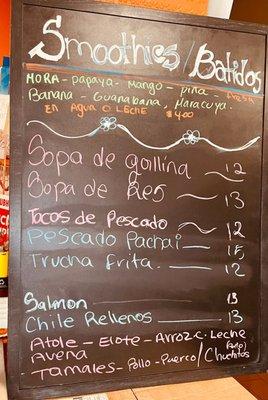 Smoothies / Batidos
MORA - Papaya - Mango - piña - Fresa
Banana - Guanabana, Maracuya.
EN Agua O LECHE $4.00
Sopa de gallina 12
Sopa de Res 13
Tacos de Pescado 12
Pescado Pachai 15
Trucha frita. 12
Salmon 13
Chile Rellenos 13
Atole - Elote - Arroz c. Leche
Avena
Tamales - Pollo - Puerco / Chuchitos